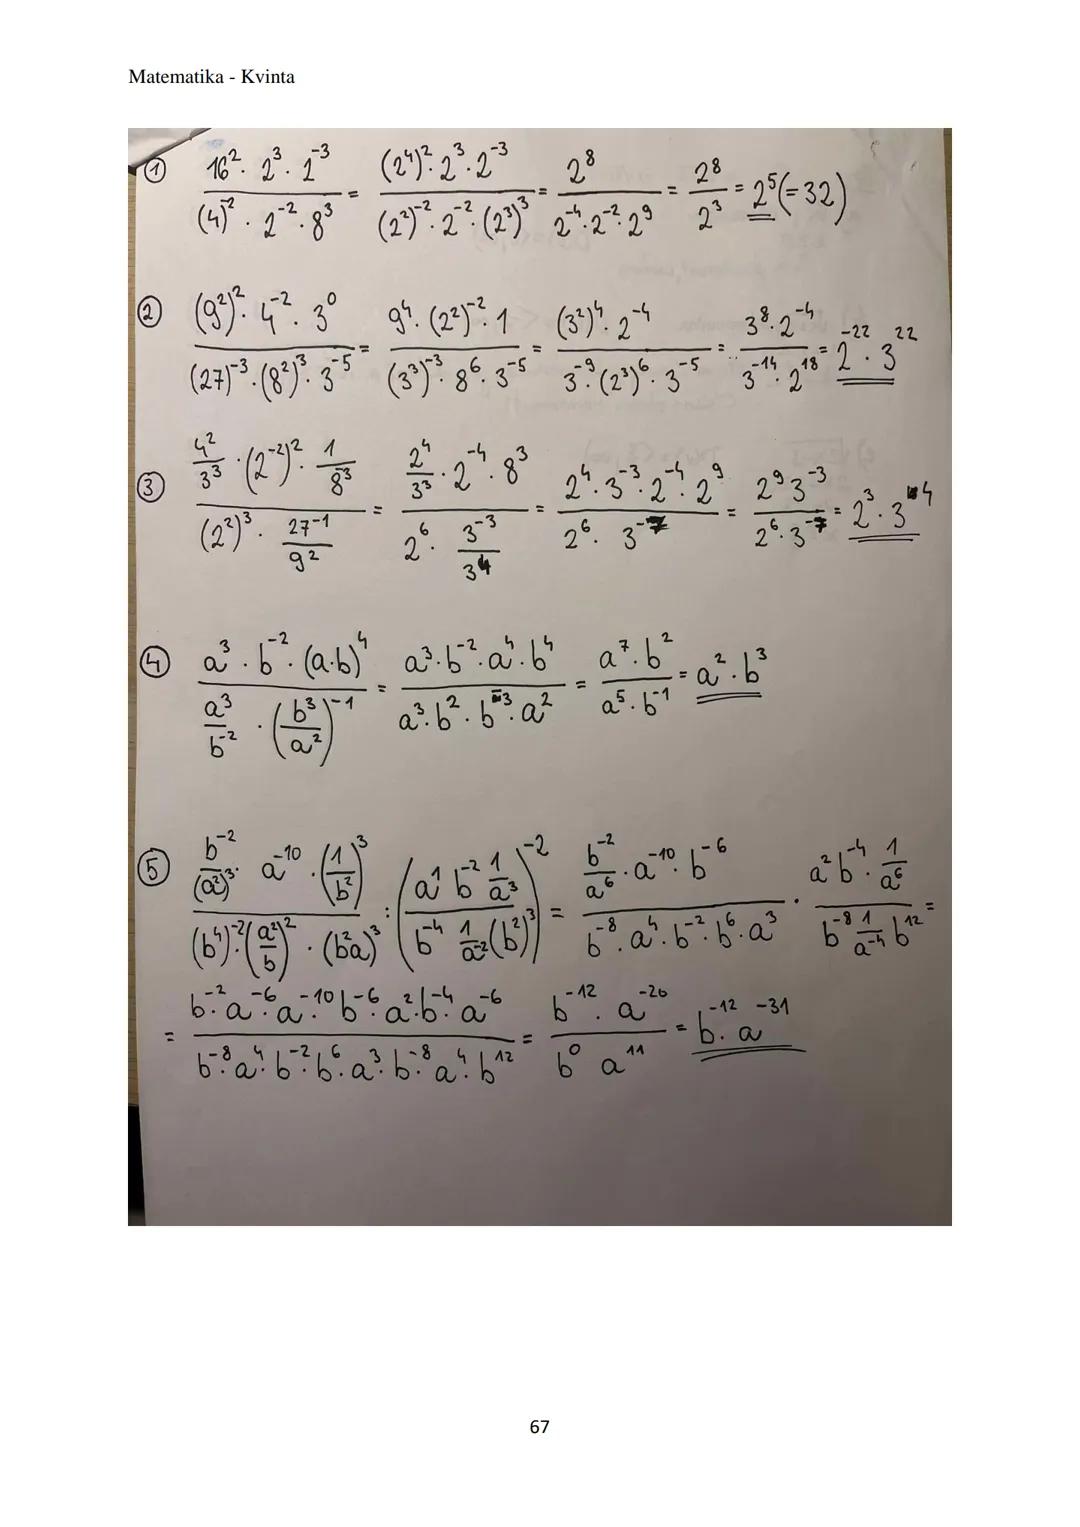 Matematika - Kvinta
① \frac{16^2 · 2^3 · 2^{-3}}{(4)^{-2} · 2^{-2} · 8^3} = \frac{(2^4)^2 · 2^3 · 2^{-3}}{(2^2)^{-2} · 2^{-2} · (2^3)^3} = \frac{2^8}{2^{-4} · 2^{-2} · 2^9} = \frac{2^8}{2^3} = 2^5 (= 32)
② \frac{(9^2)^2 · 4^{-2} · 3^0}{(27)^{-3} · (8^2)^3 · 3^{-5}} = \frac{9^4 · (2^2)^{-2} · 1}{(3^3)^{-3} · 8^6 · 3^{-5}} = \frac{(3^2)^4 · 2^{-4}}{3^{-9} · (2^3)^6 · 3^{-5}} = \frac{3^8 · 2^{-4}}{3^{-14} · 2^{18}} = 2^{-22} · 3^{22}
③ \frac{\frac{4^2}{3^3} · (2^{-2})^2 · \frac{1}{8^{-3}}}{(2^2)^3 · \frac{27^{-1}}{9^2}} = \frac{\frac{2^4}{3^3} · 2^{-4} · 8^3}{2^6 · \frac{3^{-3}}{3^4}} = \frac{2^4 · 3^{-3} · 2^{-4} · 2^9}{2^6 · 3^{-7}} = \frac{2^9 3^{-3}}{2^6 · 3^{-7}} = 2^3 · 3^4
④ \frac{a^3 · b^{-2} · (a·b)^4}{\frac{a^3}{b^{-2}} · (\frac{b^3}{a^2})^{-1}} = \frac{a^3 · b^{-2} · a^4 · b^4}{a^3 · b^2 · b^{-3} · a^2} = \frac{a^7 · b^2}{a^5 · b^{-1}} = a^2 · b^3
⑤ \frac{\frac{b^{-2}}{(a^2)^3} · a^{-10} · (\frac{1}{b^2})^3}{(b^4)^{-2} · (\frac{a^2}{b})^2 · (b^2 a)^3} : (\frac{a^1 b^{-2} \frac{1}{a^3}}{b^{-4} \frac{1}{a^{-2}} (b^2)^3})^{-2} = \frac{\frac{b^{-2}}{a^6} · a^{-10} · b^{-6}}{b^{-8} · a^4 · b^{-2} · b^6 · a^3} · \frac{a^2 b^{-4} · \frac{1}{a^6}}{b^{-8} \frac{1}{a^{-4}} b^{12}} =
= \frac{b^{-2} · a^{-6} · a^{-10} · b^{-6} · a^2 · b^{-4} · a^{-6}}{b^{-8} · a^4 · b^{-2} · b^6 · a^3 · b^{-8} · a^4 · b^{12}} = \frac{b^{-12} · a^{-20}}{b^0 a^{11}} = b^{-12} · a^{-31}
67